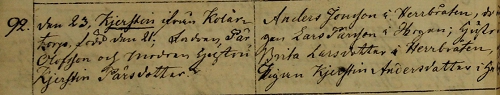 92. den 23, Kjerstin ifrån Kolar-
torp, född den 21, Fadren, Pär
Olofsson och Modren Hustru
Kjerstin Pärsdotter.
Anders Jonsson i Herrbråten, 
gen Lars Pärsson i Skogen; Hustr
Brita Larsdotter i Herrbråten,
Pigan Kjerstin Andersdotter i